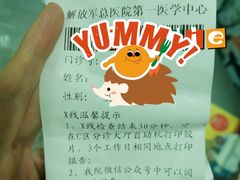 解放军总医院第一医学中心
YUMMY!
门诊号
姓名:
性别:
X线温馨提示
1、X线检查结束30分钟,可
在C区分诊大厅自动机打印胶
片,3个工作日相同地点打印
报告;
2、我院微信公众号中可以阅